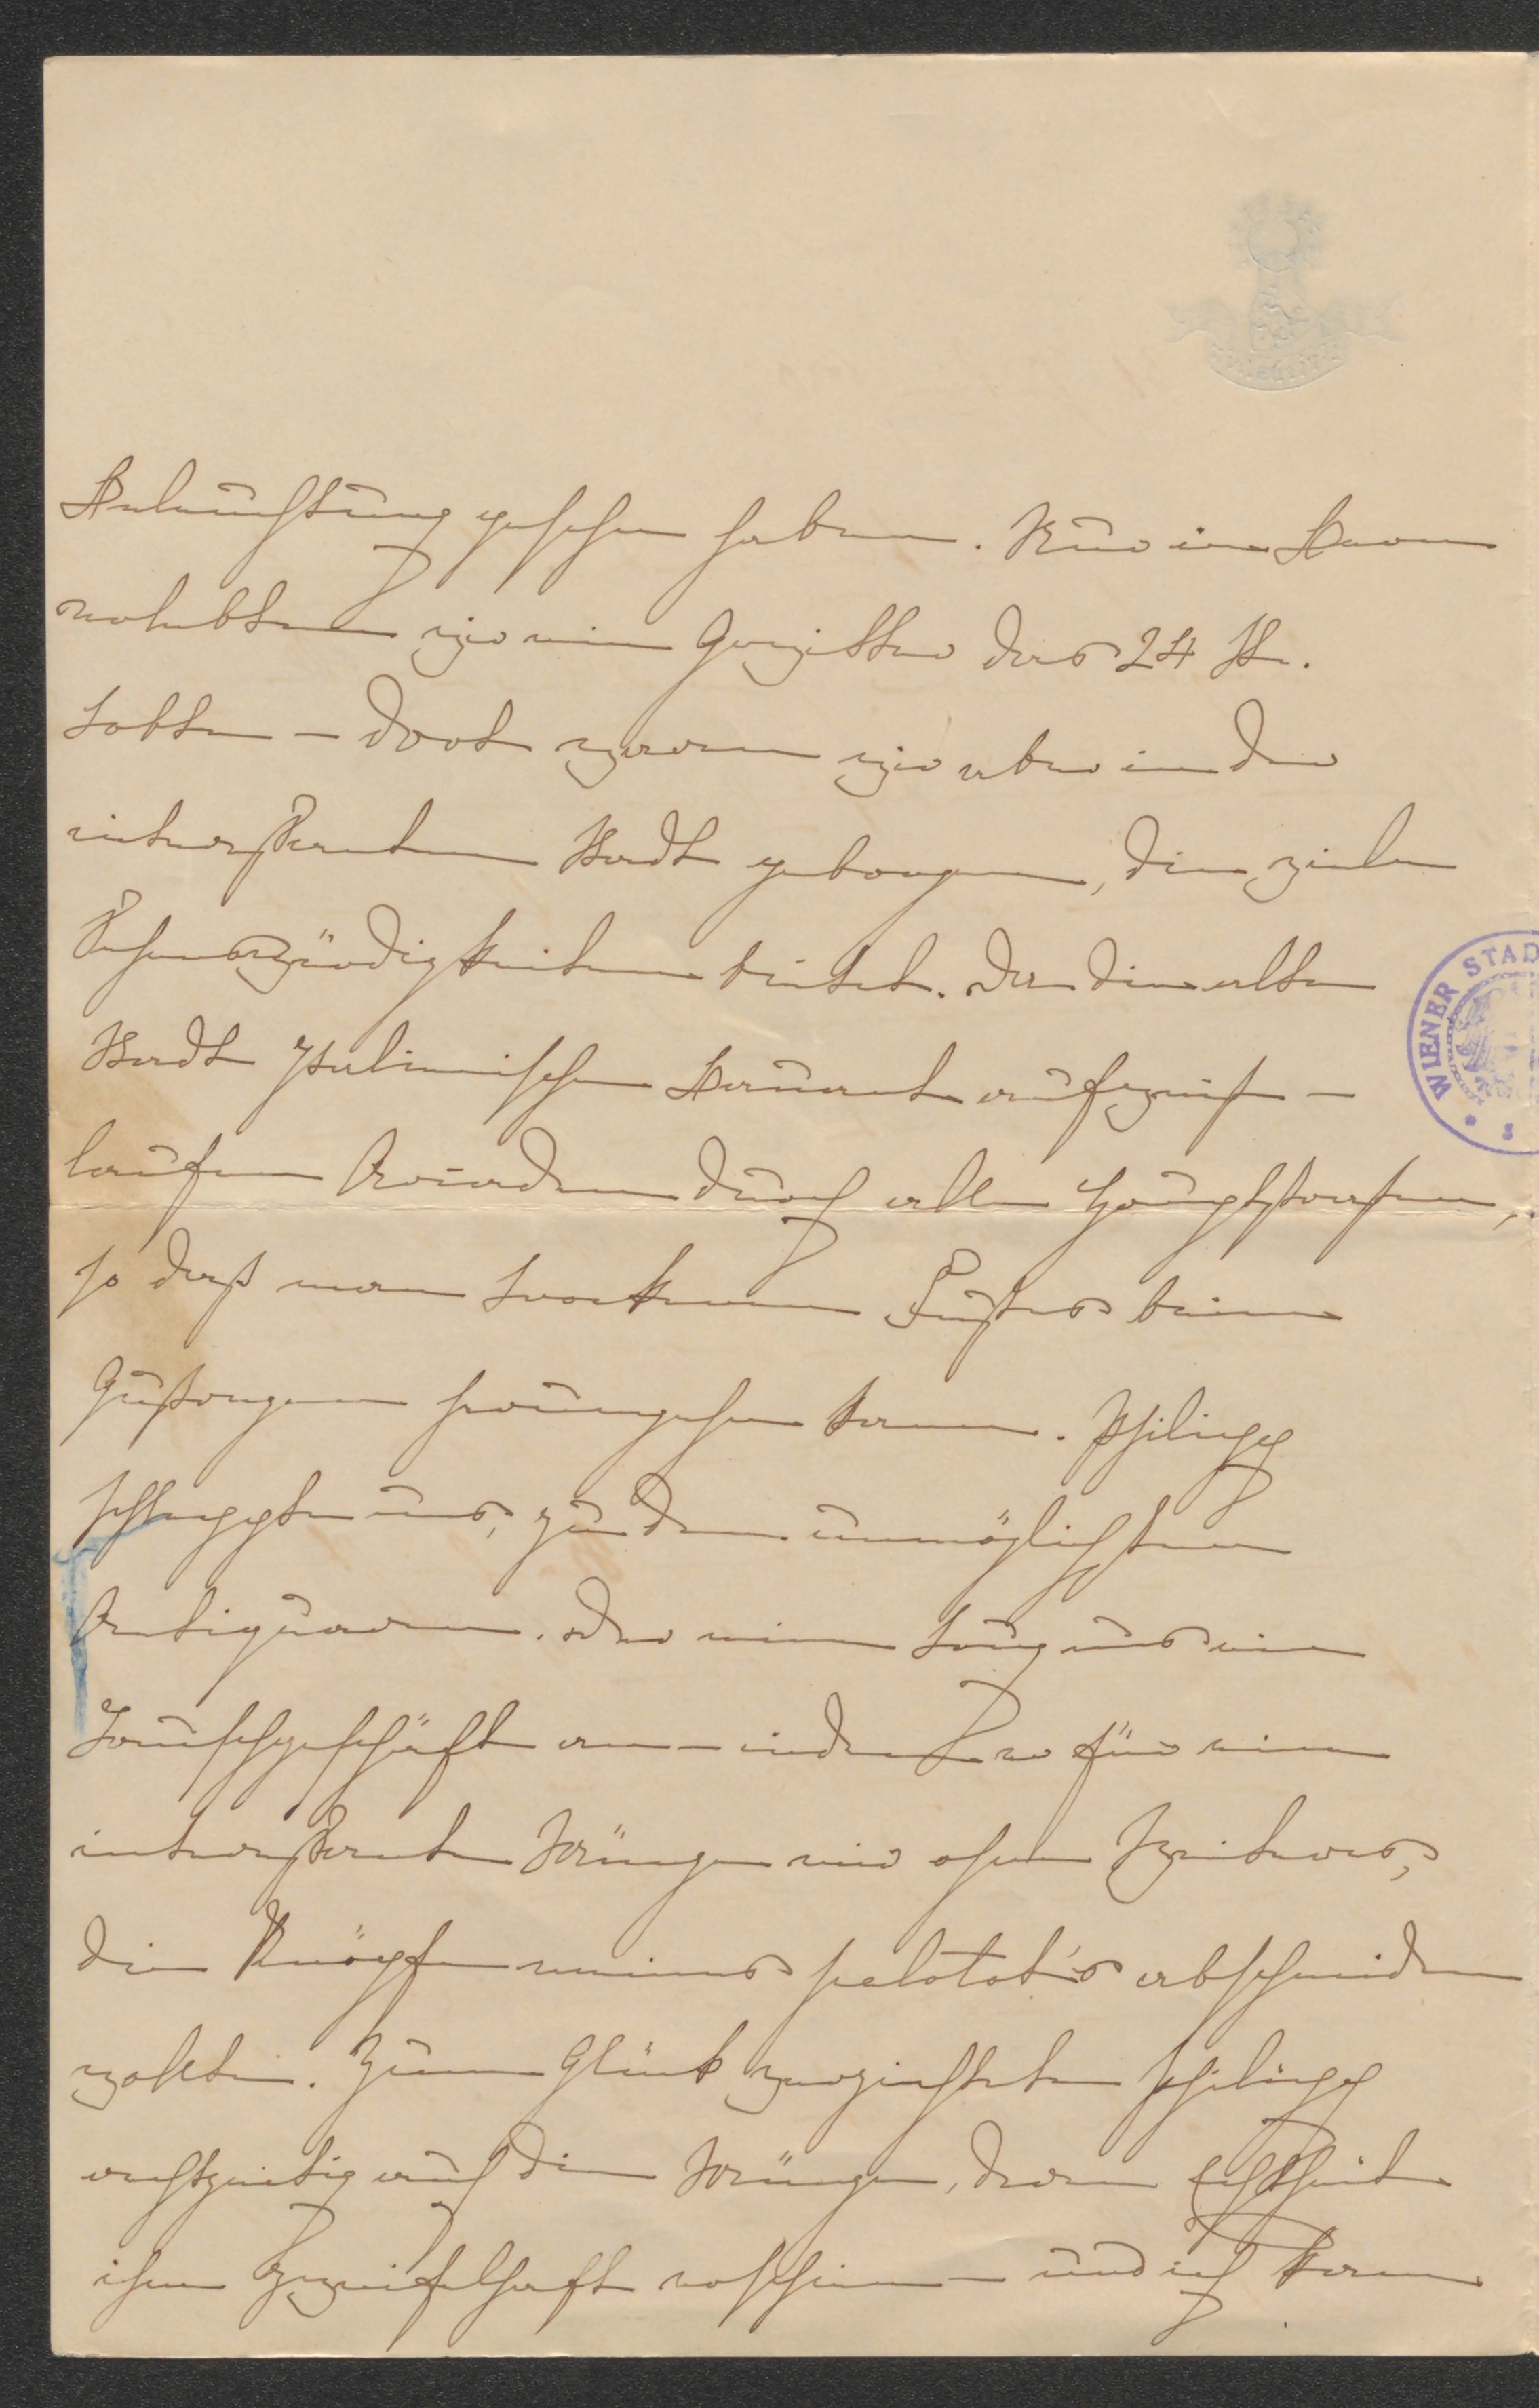 Beleuchtung gesehen haben. Nur in Bern
erlebten wir ein Gewitter das 24 St.
tobte – dort waren wir aber in der
interessanten Stadt geborgen, die viele
Sehenswürdigkeiten bietet. Da die alte
Stadt italienische Bauart aufweist –
laufen Arcaden durch alle Hauptstrassen,
so dass man trockenen Fusses beim
Gussregen herumgehen kann. Philipp
schleppte uns, zu den unmöglichsten
Antiquaren. Der eine trug uns ein
Tauschgeschäft an – indem er für eine
interessante Münze mir ohne Weiteres,
die Knöpfe meines paletot's abschneiden
wollte. Zum Glück verzichtete Philipp
rechtzeitig auf die Münze, deren Echtheit
ihm zweifelhaft erschien – und ich kam
WIENER STAD